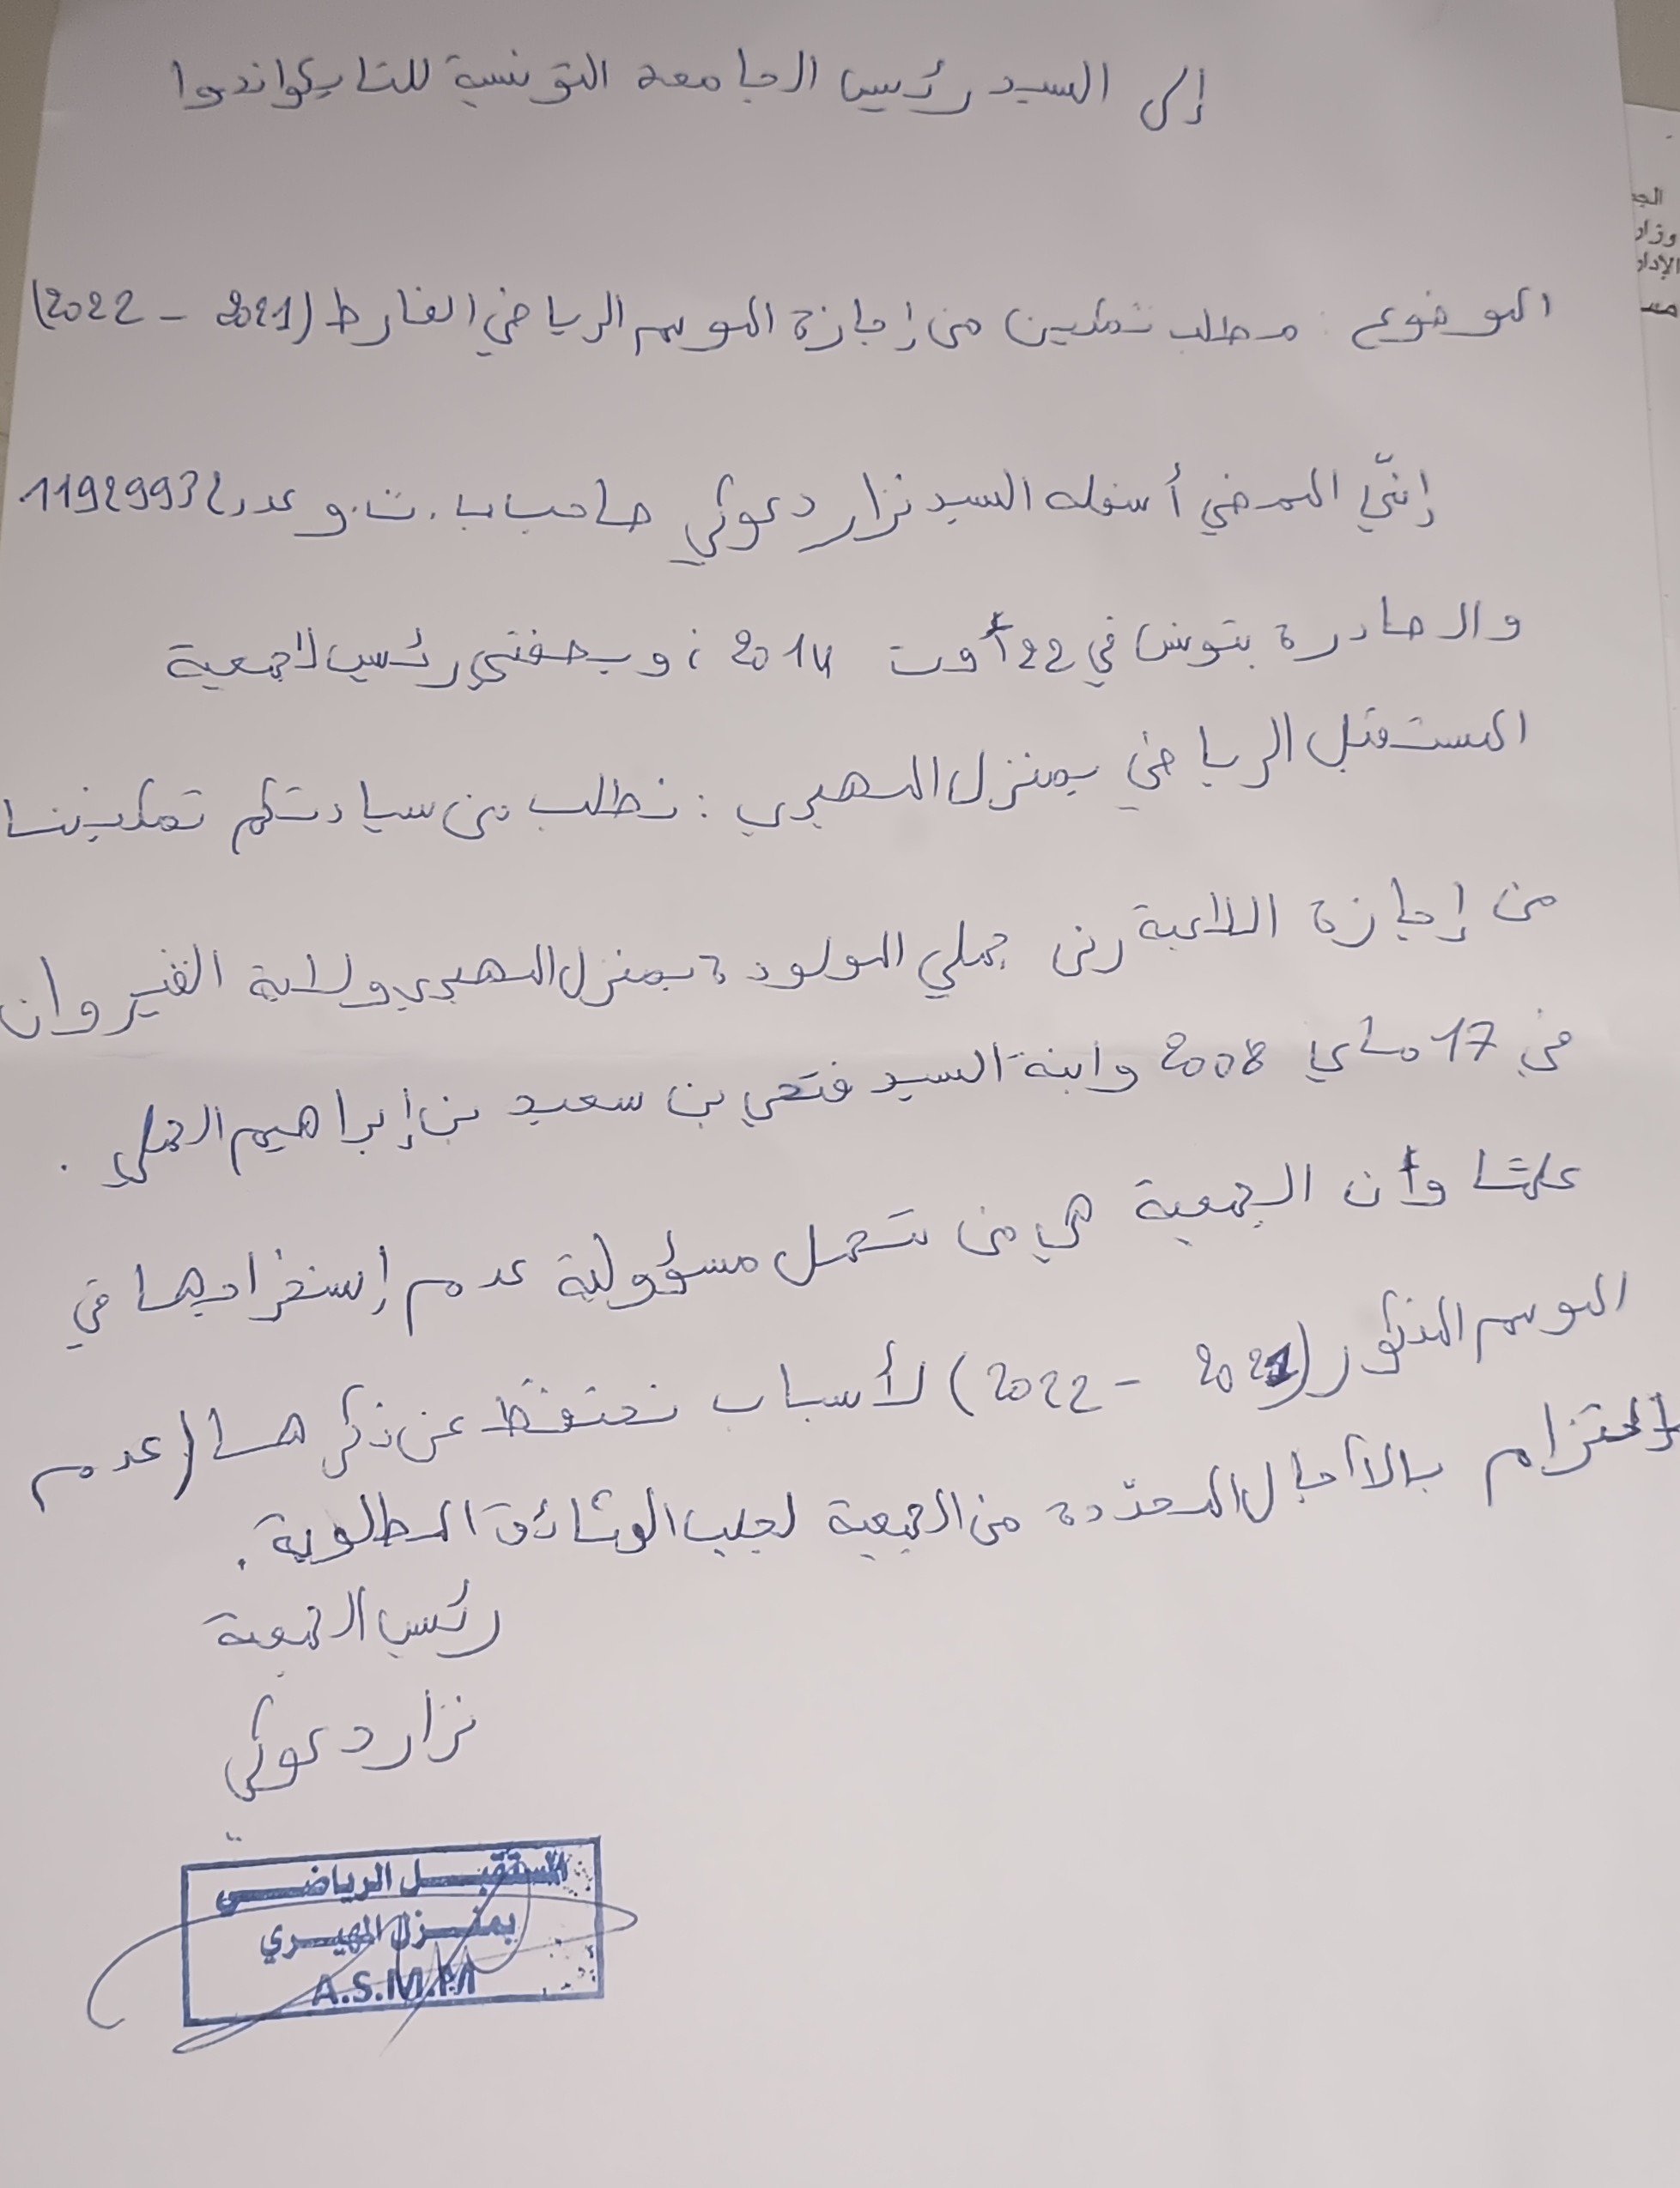 إلى السيد رئيس الجامعة التونسية للتايكواندوا
الموضوع : مطلب تمكين من إجازة الموسم الرياضي الفارط (2021 - 2022)
إنّي الممضي أسفله السيد نزار دعولي صاحب ب.ت.و عدد 11929932
والصادرة بتونس في 22 أوت 2014 ; وبصفتي رئيس لاجمعية
المستقبل الرياضي بمنزل المهيري : نطلب من سيادتكم تمكيننا
من إجازة اللاعبة رنى جملي المولودة بمنزل المهيري ولاية القيروان
في 17 ماي 2008 وابنة السيد فتحي بن سعيد بن إبراهيم الجملي .
علما وأن الجمعية هي من تتحمل مسؤولية عدم إستخراجها في
الموسم المذكور (2021 - 2022) لأسباب نحتفظ عن ذكرها (عدم
إلتزام بالآجال المحدّدة من الجمعية لجلب الوثائق المطلوبة .
رئيس الجمعية
نزار دعولي
المستقبل الرياضي
بمنزل المهيري
A.S.M.M
الج
وزار
الإدار